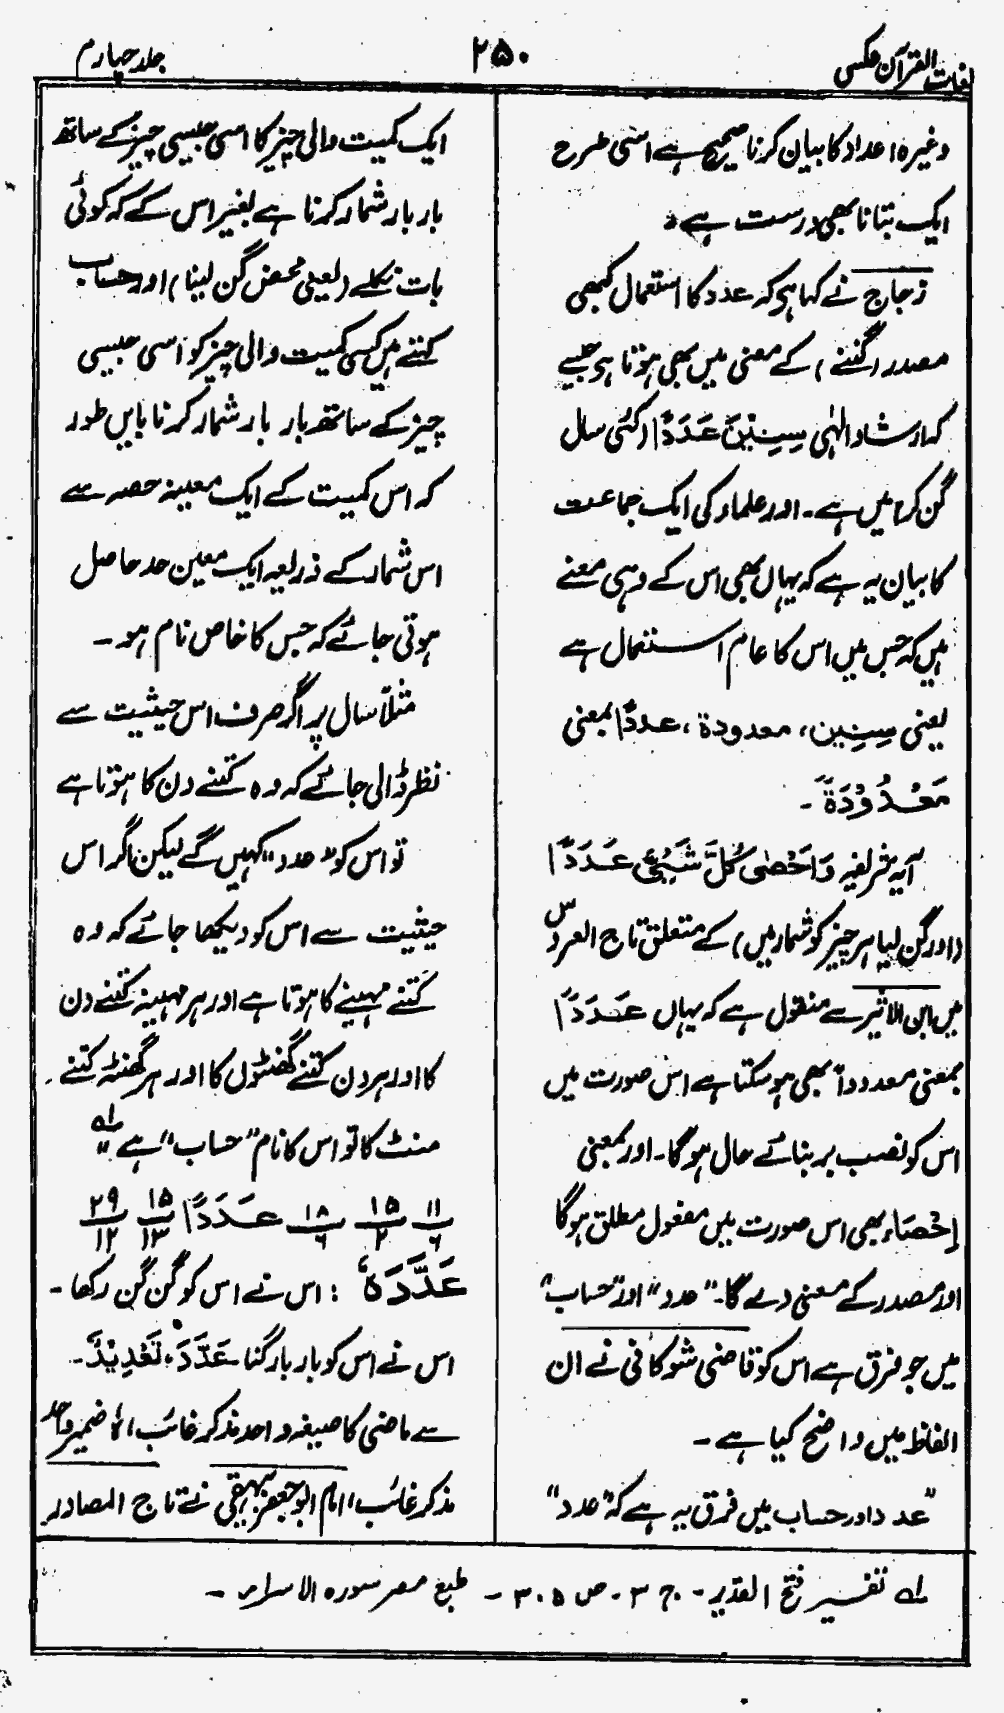 لغات القرآن عکسی
۲۵۰
جلد چہارم
وغیرہ اعداد کا بیان کرنا صحیح ہے اسی طرح
ایک بتانا بھی درست ہے۔
زجاج نے کہا ہی کہ عدد کا استعمال کبھی
مصدر (گننے) کے معنی میں بھی ہوتا ہی جیسے
کہ ارشاد الٰہی سِنِیْنَ عَدَدًا (کئی سال
گن کر) میں ہے۔ اور علماء کی ایک جماعت
کا بیان یہ ہے کہ یہاں بھی اس کے وہی معنے
ہیں کہ جس میں اس کا عام استعمال ہے
یعنی سِنِین، معدودۃ، عددًا بمعنی
مَعْدُوْدَۃً۔
آیہ شریفہ وَاَحْصٰی کُلَّ شَیْئٍ عَدَدًا
(اور گن لیا ہر چیز کو شمار میں) کے متعلق تاج العروس
میں ابن الاثیر سے منقول ہے کہ یہاں عَدَدًا
بمعنی معدوداً بھی ہو سکتا ہے اس صورت میں
اس کو نصب بر بنائے حال ہوگا۔ اور بمعنی
اِحْصَاء بھی اس صورت میں مفعول مطلق ہوگا
اور مصدر کے معنی دے گا۔ "عدد" اور "حساب"
میں جو فرق ہے اس کو قاضی شوکانی نے ان
الفاظ میں واضح کیا ہے۔
"عدد اور حساب میں فرق یہ ہے کہ "عدد"
ایک کمیت والی چیز کا اسی جیسی چیز کے ساتھ
بار بار شمار کرنا ہے بغیر اس کے کہ کوئی
بات نکلے (یعنی محض گن لینا) اور حساب
کہتے ہیں کسی کمیت والی چیز کو اسی جیسی
چیز کے ساتھ بار بار شمار کرنا بایں طور
کہ اس کمیت کے ایک معینہ حصہ سے
اس شمار کے ذریعہ ایک معین حد حاصل
ہوتی جائے کہ جس کا خاص نام ہو۔
مثلاً سال پر اگر صرف اس حیثیت سے
نظر ڈالی جائے کہ وہ کتنے دن کا ہوتا ہے
تو اس کو "عدد" کہیں گے لیکن اگر اس
حیثیت سے اس کو دیکھا جائے کہ وہ
کتنے مہینے کا ہوتا ہے اور ہر مہینہ کتنے دن
کا اور ہر دن کتنے گھنٹوں کا اور ہر گھنٹہ کتنے
منٹ کا تو اس کا نام "حساب" ہے" لہ
۱۱/۶ ۱۵/۲ ۱۸/۶ عَدَدًا ۱۵/۱۳ ۲۹/۱۲
عَدَّدَہٗ : اس نے اس کو گن گن رکھا۔
اس نے اس کو بار بار گنا۔ عَدَّدَ، تَعْدِیْدٌ۔
سے ماضی کا صیغہ واحد مذکر غائب، ہٗ ضمیر واحد
مذکر غائب، امام ابو جعفر بیہقی نے تاج المصادر
لہ تفسیر فتح القدیر۔ ج ۳۔ ص ۳۰۵۔ طبع مصر سورہ الاسراء۔